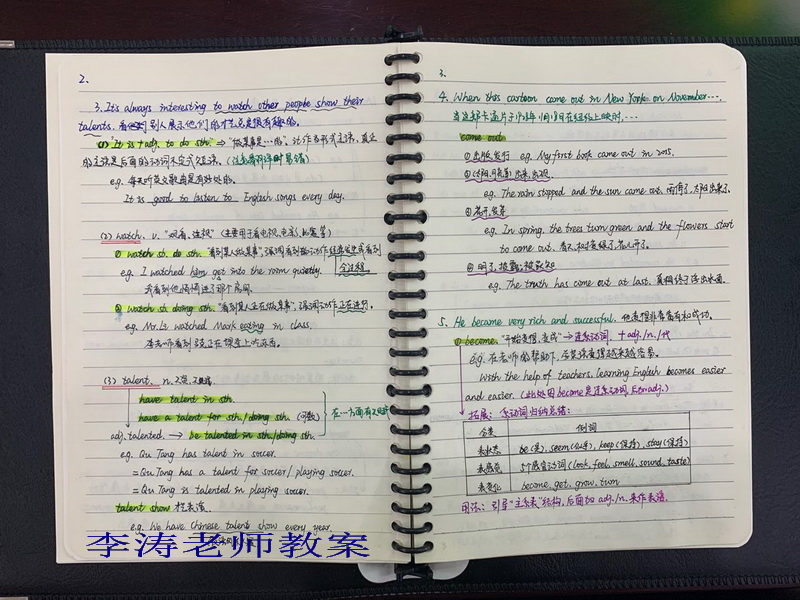 2、
3. It's always interesting to watch other people show their
talents. 看别人展示他们的才艺总是很有趣的。
(1) "It is + adj. to do sth." ⇒ "做某事是…的". it作形式主语, 真正
的主语是后面的动词不定式短语.
e.g. 每天听英文歌曲是有好处的。
It is good to listen to English songs every day.
(2) watch. v. "观看、注视" (主要用于看电视、电影、比赛等)
① watch sb. do sth. "看到某人做某事", 强调看到
全过程
e.g. I watched him get into the room quietly.
我看到他悄悄进了那个房间.
② watch sb. doing sth. "看到某人正在做某事", 强调动作正在进行.
e.g. Mr. Li watched Mark eating in class.
李老师看到马克在课堂上吃东西.
(3) talent. n. 天资、天赋
have talent in sth.
have a talent for sth./doing sth. (可数)
在…方面有天赋
adj. talented. → be talented in sth./doing sth.
e.g. Qu Tang has talent in soccer.
= Qu Tang has a talent for soccer/ playing soccer.
= Qu Tang is talented in playing soccer.
talent show 才艺表演
e.g. We have Chinese talent show every year.
李涛老师教案
3.
4. When this cartoon came out in New York on November….
当这部卡通片于1928年11月18日在纽约上映时, ….
come out
① 出版、发行 e.g. My first book came out in 2015.
② (太阳、月亮等) 出来、出现
e.g. The rain stopped and the sun came out. 雨停了, 太阳出来了.
③ 花开、发芽
e.g. In spring, the trees turn green and the flowers start
to come out. 春天, 树变绿了, 花儿开了.
④ 明了、披露; 被获知
e.g. The truth has come out at last. 真相终于浮出水面.
5. He became very rich and successful. 他变得非常富有和成功.
① become. "开始变得、变成" → 连系动词. + adj./n./代
e.g. 在老师的帮助下, 英语学习变得越来越容易.
With the help of teachers, learning English becomes easier
and easier. (此处因become是连系动词, 后加adj.)
拓展: 系动词归纳总结:
分类 例词
表状态 be (是), seem (似乎), keep (保持), stay (保持)
表感官 5个感官动词 (look, feel, smell, sound, taste)
表变化 become, get, grow, turn
用法: 引导 "主系表" 结构, 后面加 adj./n. 来作表语.